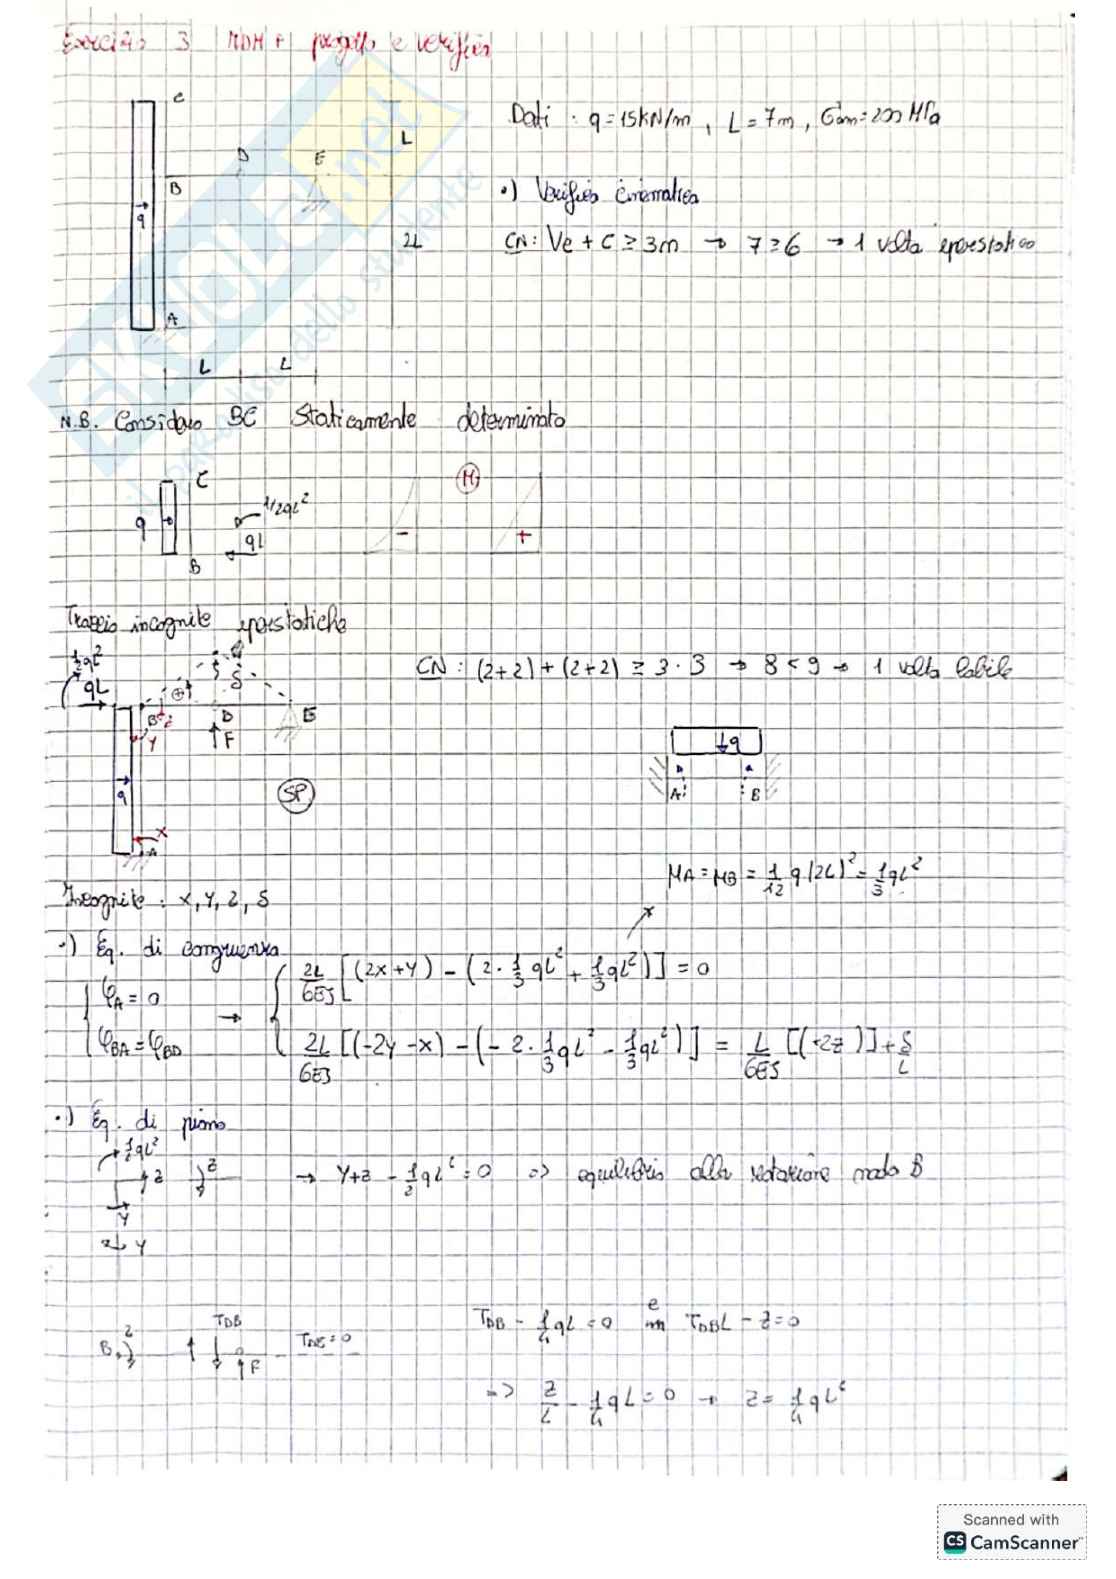 Esercizio 3 MDM + progetto e verifica
C
Dati : q=15kN/m , L=7m , σam=200 MPa
L
D E
B
q
·) Verifica cinematica
2L
CN: Ve + C ≥ 3m → 7 ≥ 6 → 1 volta iperstatico
A
L L
N.B. Considero BC staticamente determinato
C
M
q
1/2qL²
qL
- +
B
Traccio incognite iperstatiche
1/2qL²
qL
CN : (2+2) + (2+2) ≥ 3·3 → 8 < 9 → 1 volta labile
δ
B z D E
Y F
q
SP
X
A
q
A B
MA = MB = 1/12 q (2L)² = 1/3 qL²
Incognite : x, y, z, δ
·) Eq. di congruenza
φA = 0 → 2L/6EJ [(2x+y) - (2·1/3 qL² + 1/3 qL²)] = 0
φBA = φBD 2L/6EJ [(-2y -x) - (-2·1/3 qL² - 1/3 qL²)] = L/6EJ [(-2z)] + δ/L
·) Eq. di piano
1/2qL²
z z
→ Y+z - 1/2 qL² = 0 => equilibrio alla rotazione nodo B
Y
Y
TDB - 1/4 qL = 0 e TDBL - z = 0
TDB
B z TDE = 0
F
=> z/L - 1/4 qL = 0 → z = 1/4 qL²
Scanned with
CS CamScanner